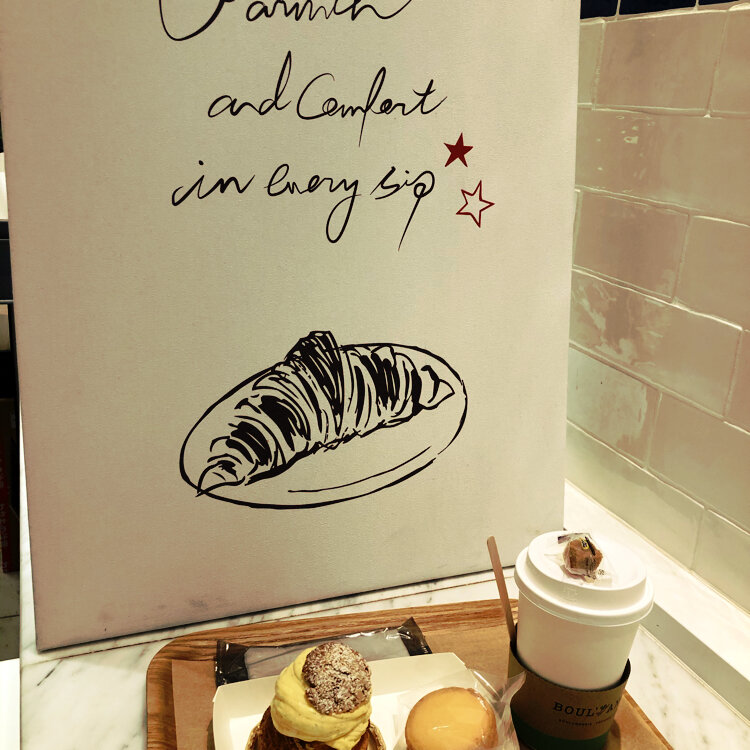 Warmth
and Comfort
in every sip